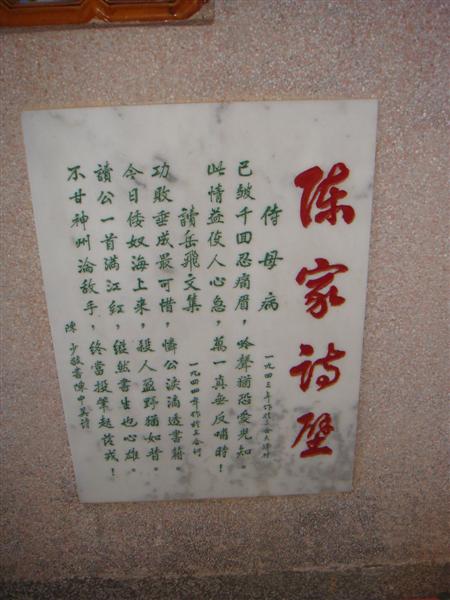 陈家诗壁
侍母病
一九四三年作於
已皱千回忍痛眉，吟聲猶恐愛兒知。
此情益使人心急，萬一真無反哺時！
讀岳飛文集
一九四四年作於上合村
功敗垂成最可惜，憐公淚滴透書籍。
今日倭奴海上來，殺人盈野猶如昔。
讀公一首满江红，纵然書生也心雄。
不甘神州淪敌手，终當投筆起從戎！
陳少毅書陳中吴诗